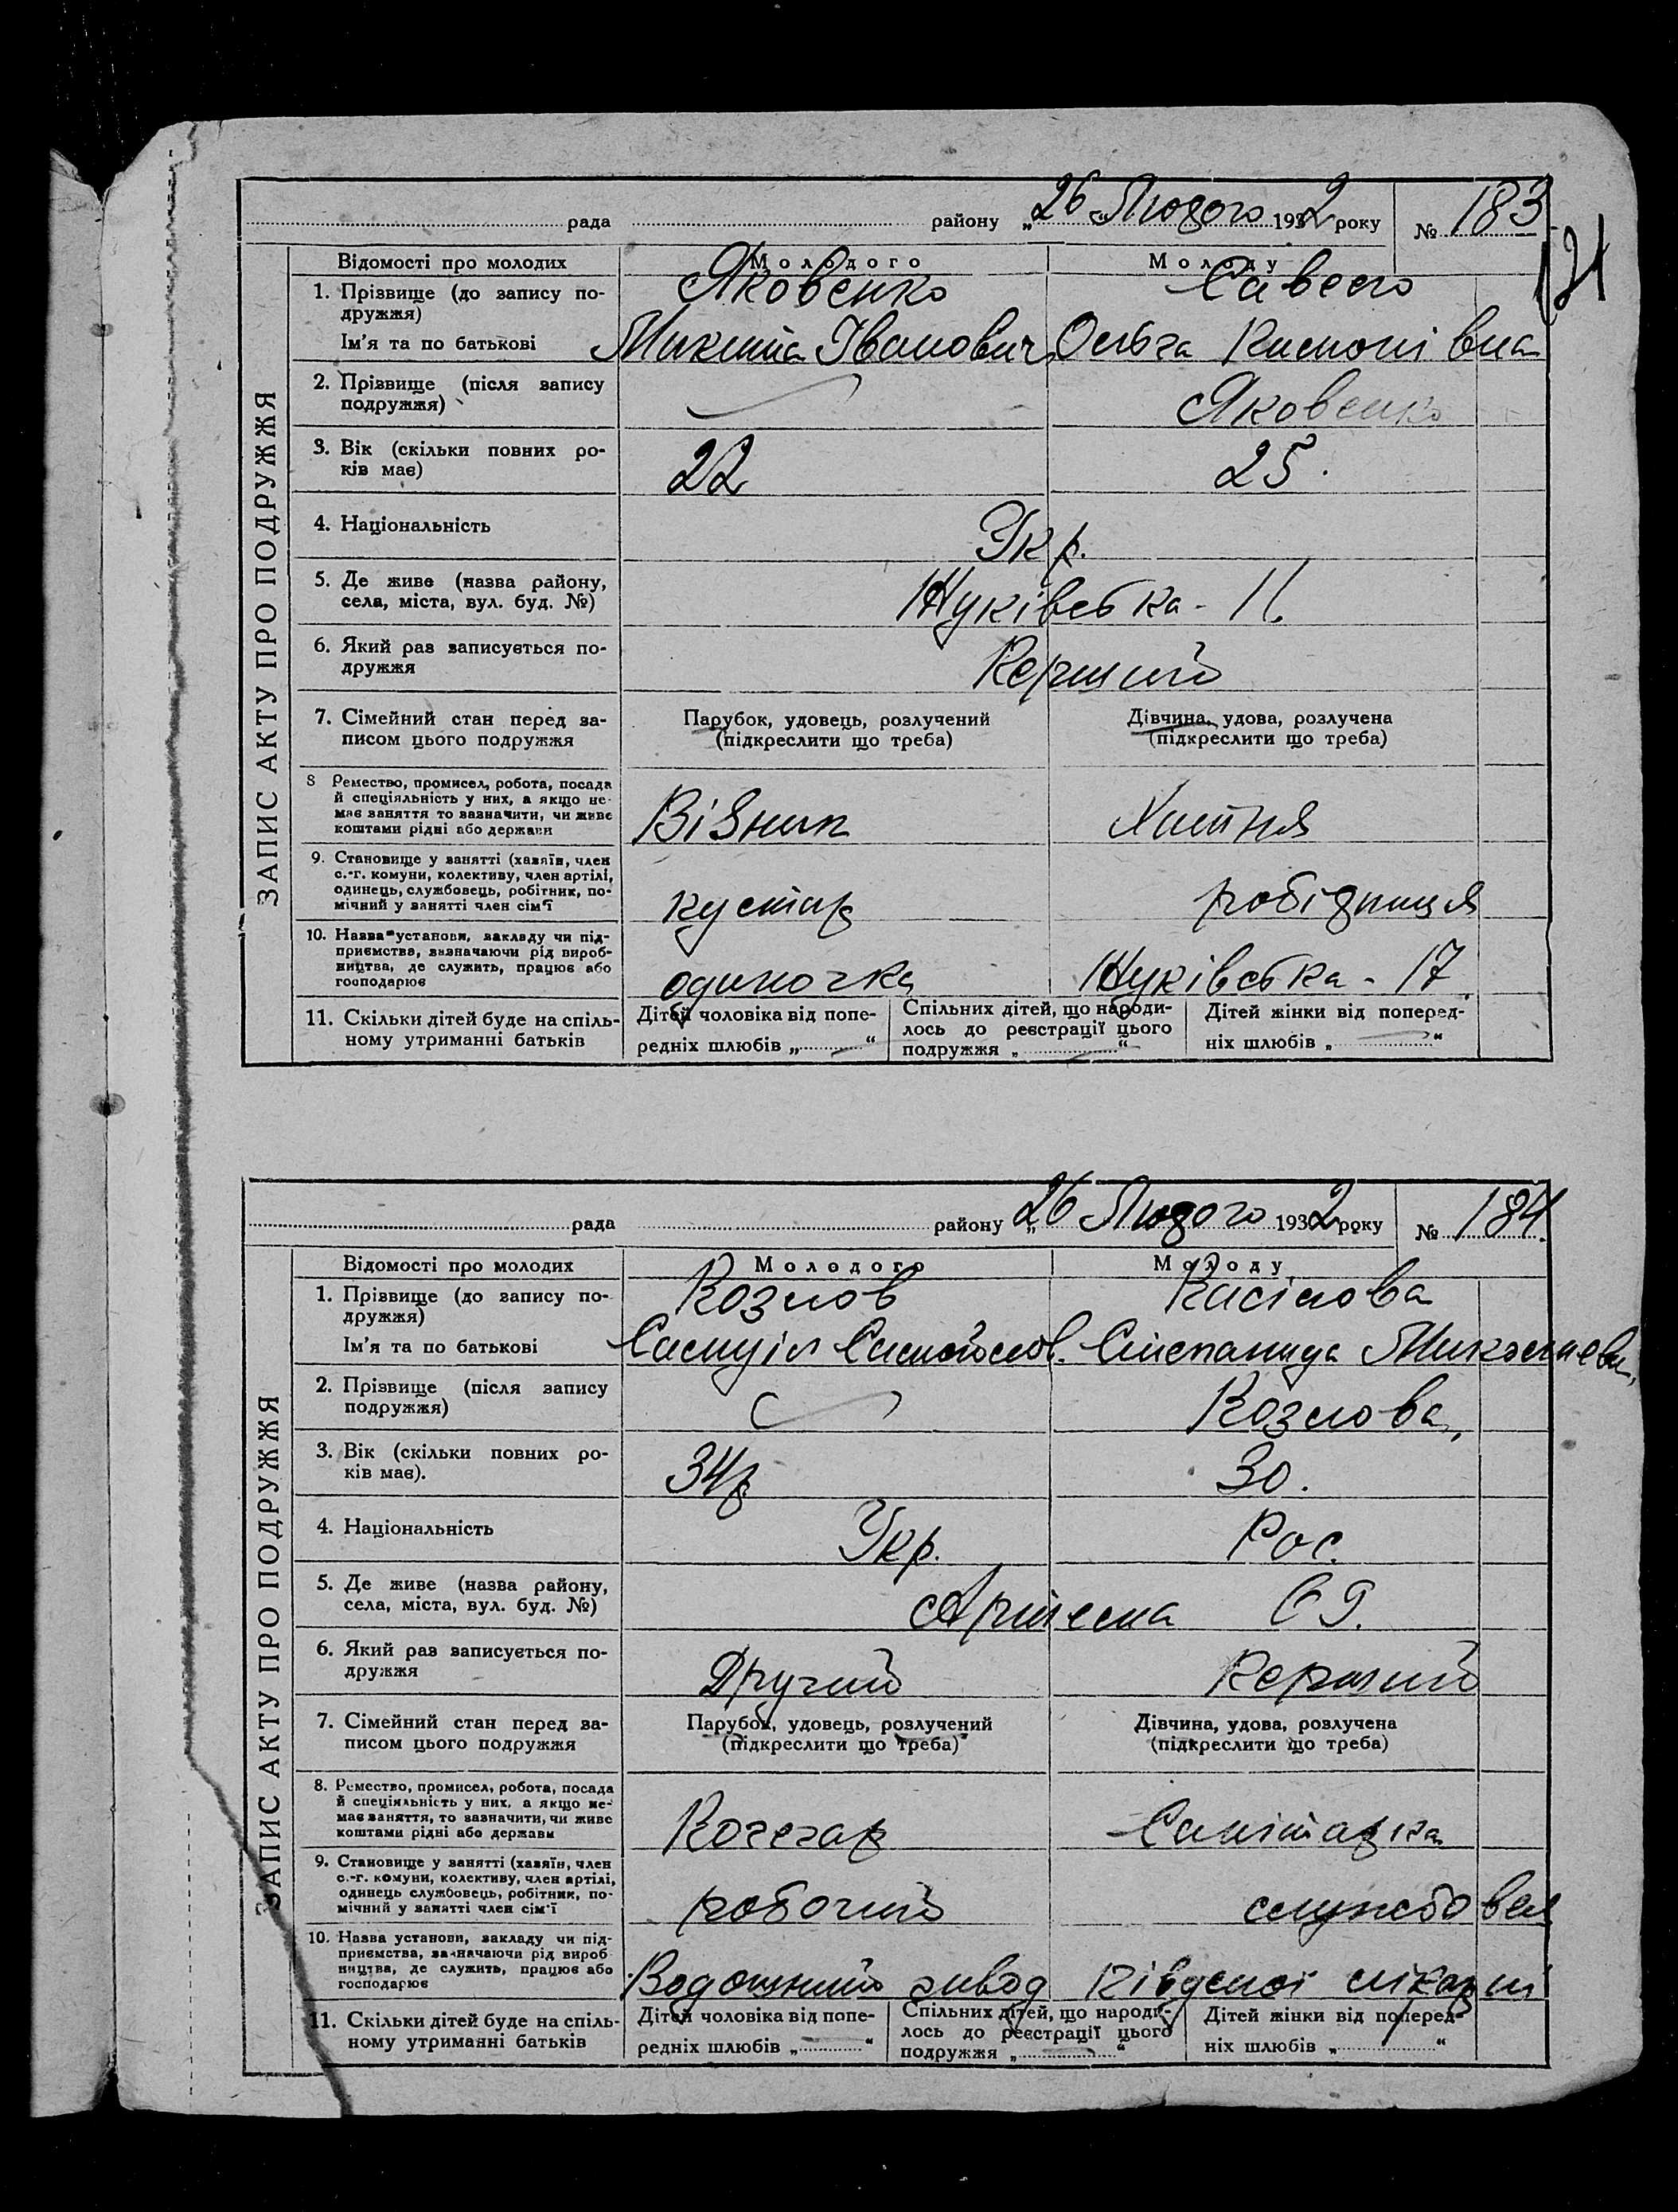 рада району „26 Лютого 1932 року № 183
121
ЗАПИС АКТУ ПРО ПОДРУЖЖЯ
Відомості про молодих Молодого Молоду
1. Прізвище (до запису по-
дружжя)
Яковенко
Ім'я та по батькові Микита Іванович Ольга
2. Прізвище (після запису
подружжя) Яковенко
3. Вік (скільки повних ро-
ків має) 22 25.
4. Національність Укр.
5. Де живе (назва району,
села, міста, вул. буд. №)
6. Який раз записується по-
дружжя Перший
7. Сімейний стан перед за-
писом цього подружжя
Парубок, удовець, розлучений
(підкреслити що треба)
Дівчина, удова, розлучена
(підкреслити що треба)
8 Ремество, промисел, робота, посада
й спеціяльність у них, а якщо не-
має заняття то зазначити, чи живе
коштами рідні або держави
Візник Хатня
9. Становище у занятті (хазяїн, член
с.-г. комуни, колективу, член артілі,
одинець, службовець, робітник, по-
мічний у занятті член сім'ї
кустар робідниця
10. Назва установи, закладу чи під-
приємства, зазначаючи рід вироб-
ництва, де служить, працює або
господарює
одиночка
11. Скільки дітей буде на спіль-
ному утриманні батьків
Дітей чоловіка від попе-
редніх шлюбів „ “
Спільних дітей, що народи-
лось до реєстрації цього
подружжя „ “
Дітей жінки від поперед-
ніх шлюбів „ “
рада району „26 Лютого 1932 року № 184.
ЗАПИС АКТУ ПРО ПОДРУЖЖЯ
Відомості про молодих Молодого Молоду
1. Прізвище (до запису по-
дружжя)
Козлов
Ім'я та по батькові Самуіл Самойлов. Степанида Миколаєвн.
2. Прізвище (після запису
подружжя) Козлова
3. Вік (скільки повних ро-
ків має). 34р 30.
4. Національність Укр. Рос.
5. Де живе (назва району,
села, міста, вул. буд. №)
6. Який раз записується по-
дружжя Другий Перший
7. Сімейний стан перед за-
писом цього подружжя
Парубок, удовець, розлучений
(підкреслити що треба)
Дівчина, удова, розлучена
(підкреслити що треба)
8. Ремество, промисел, робота, посада
й спеціяльність у них, а якщо не-
має заняття, то зазначити, чи живе
коштами рідні або держави
Кочегар Санітарка
9. Становище у занятті (хазяїн, член
с.-г. комуни, колективу, член артілі,
одинець службовець, робітник, по-
мічний у занятті член сім'ї
робочий
10. Назва установи, закладу чи під-
приємства, зазначаючи рід вироб
ництва, де служить, працює або
господарює
завод лікарні
11. Скільки дітей буде на спіль-
ному утриманні батьків
Дітей чоловіка від попе-
редніх шлюбів „ “
Спільних дітей, що народи-
лось до реєстрації цього
подружжя „ “
Дітей жінки від поперед-
ніх шлюбів „ “